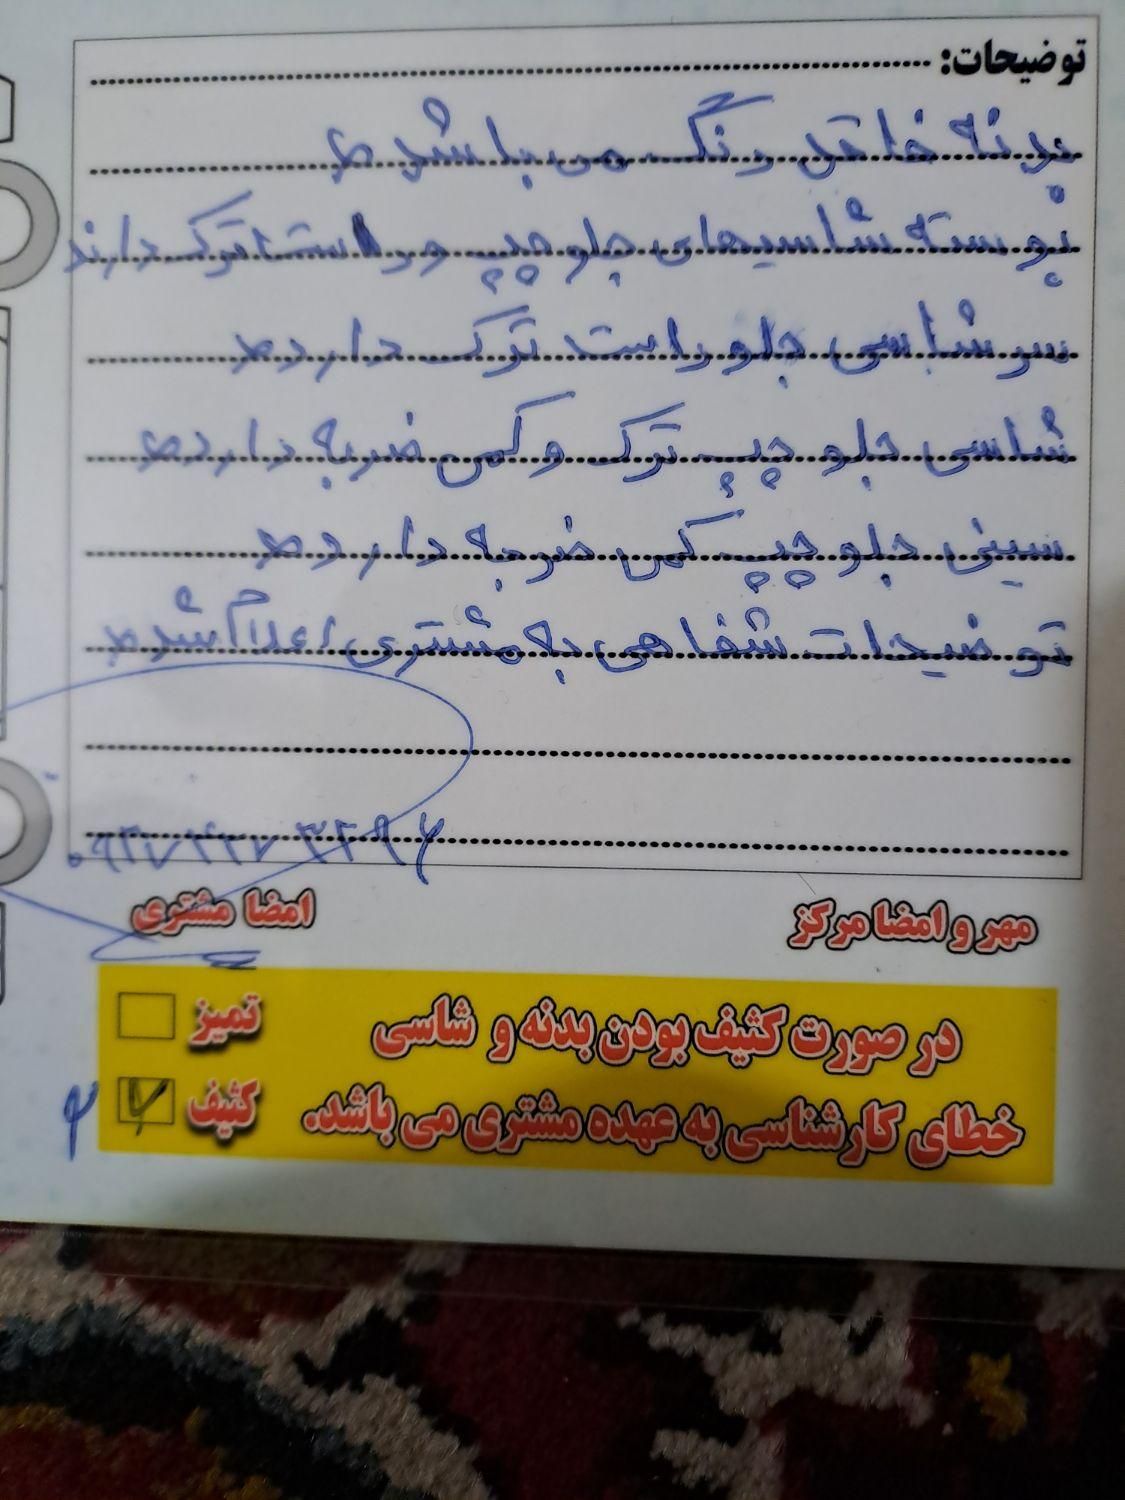 توضیحات:
بدنه فاقد رنگ می باشد
پوسته شاسیهای جلو چپ و راست ترک دارند
سرشاسی جلو راست ترک دارد
شاسی جلو چپ ترک و کمی ضربه دارد
سینی جلو چپ کمی ضربه دارد
توضیحات شفاهی به مشتری اعلام شد
مهر و امضا مرکز
امضا مشتری
در صورت کثیف بودن بدنه و شاسی
خطای کارشناسی به عهده مشتری می باشد.
تمیز
کثیف